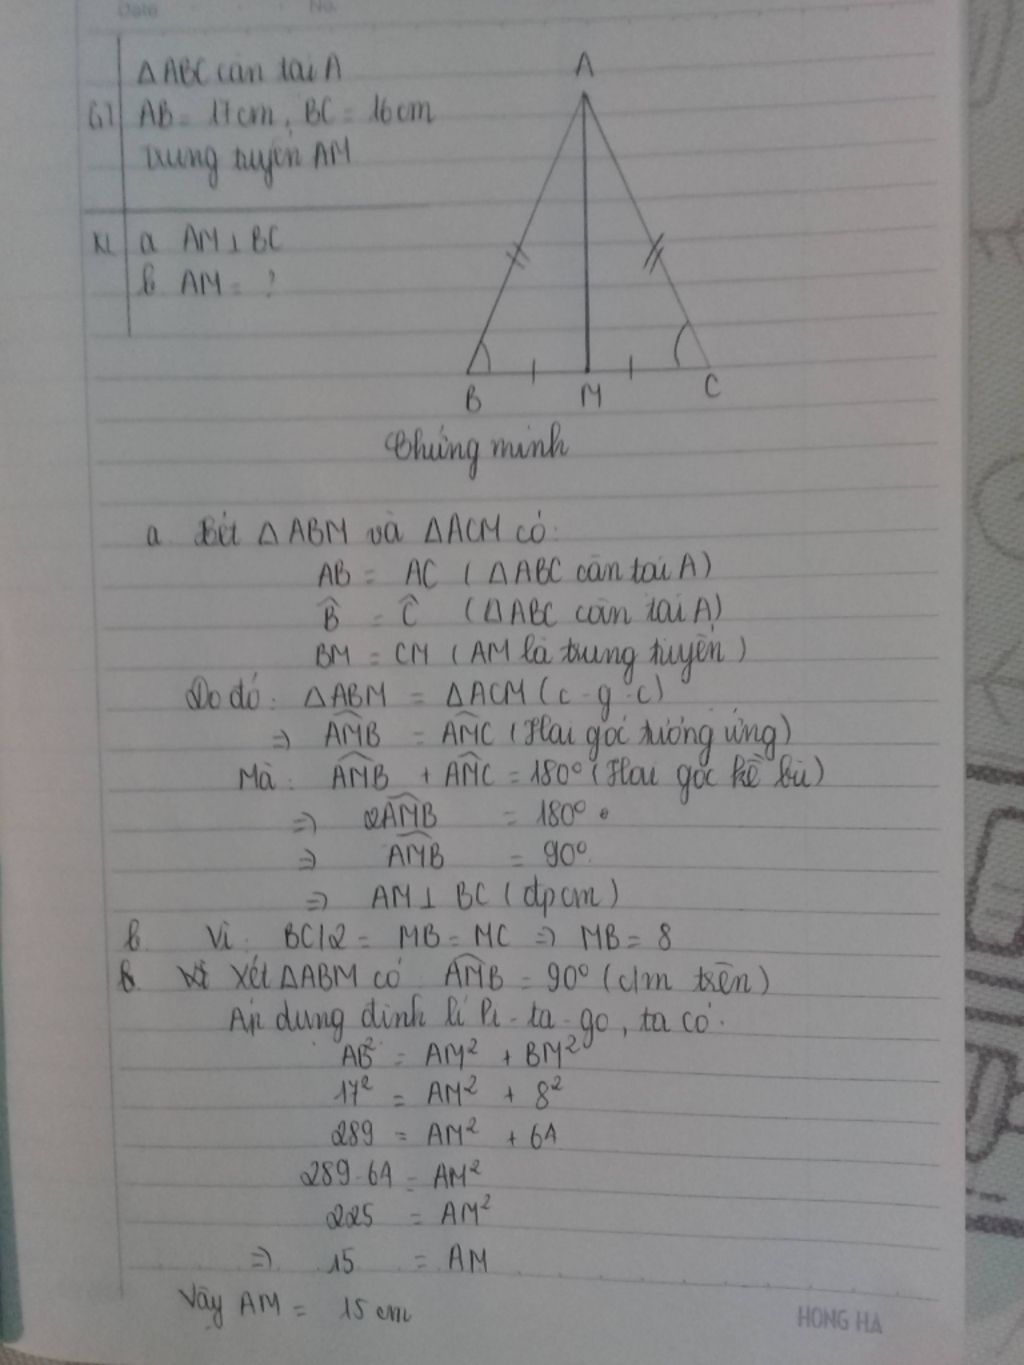 Date No.
△ABC cân tại A
GT AB = 17cm, BC = 16cm
trung tuyến AM
KL a AM ⊥ BC
b AM = ?
A
B M C
Chứng minh
a Xét △ABM và △ACM có:
AB = AC (△ABC cân tại A)
B̂ = Ĉ (△ABC cân tại A)
BM = CM (AM là trung tuyến)
Do đó: △ABM = △ACM (c-g-c)
⇒ AM̂B = AM̂C (Hai góc tương ứng)
Mà: AM̂B + AM̂C = 180° (Hai góc kề bù)
⇒ 2AM̂B = 180°
⇒ AM̂B = 90°
⇒ AM ⊥ BC (đpcm)
b. Vì: BC/2 = MB = MC ⇒ MB = 8
b. Xét △ABM có AM̂B = 90° (c/m trên)
Áp dụng định lí Pi-ta-go, ta có:
AB² = AM² + BM²
17² = AM² + 8²
289 = AM² + 64
289-64 = AM²
225 = AM²
⇒ 15 = AM
Vậy AM = 15 cm
HONG HA